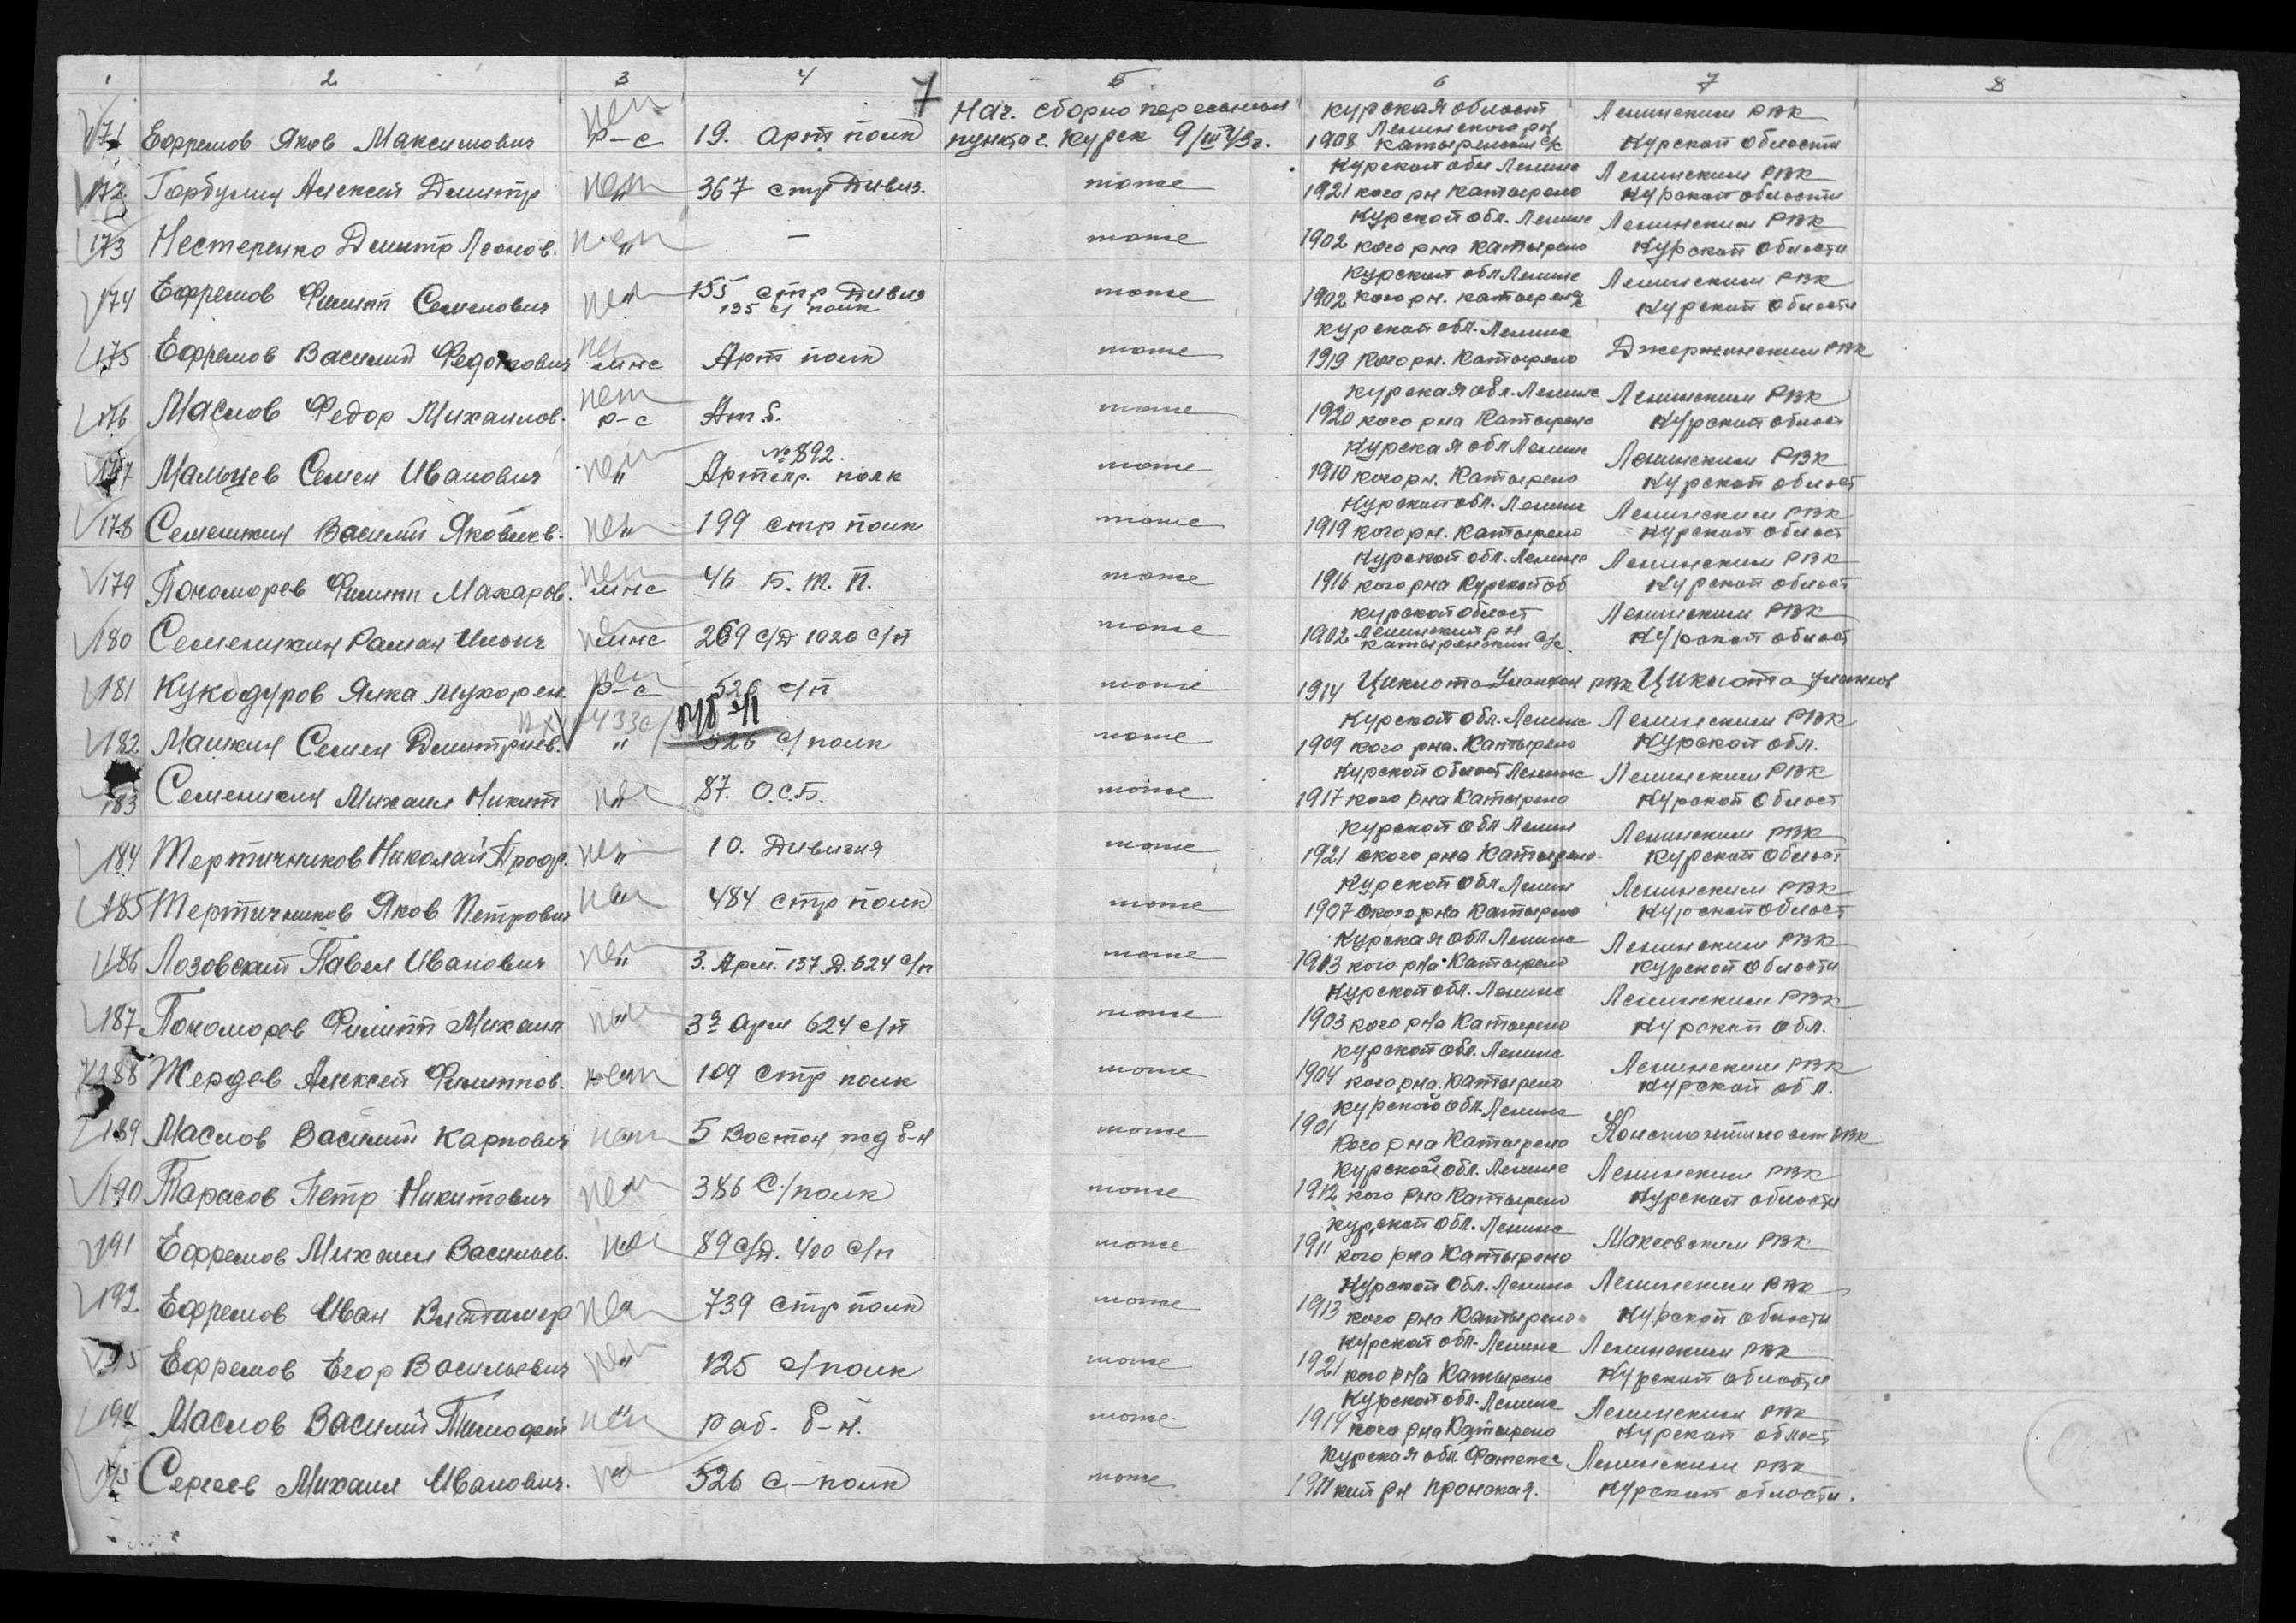 1 2 3 4 5 6 7 8
7
171 Ефремов Яков Максимович нет р-с 19. Арт полк Нач. сборно пересыльн пункта г. Курск 9/III 43г. 1908 Курская област Ленинского рн Катыренский с/с Ленинским РВК Курской области
172 Горбулин Алексей Дмитр нет " 367 стр Дивиз. тоже 1921 Курской обл Ленинс кого рн Катырено Ленинским РВК Курской области
173 Нестеренко Дмитр Леонов. нет " — тоже 1902 Курской обл. Ленинс кого рна Катырено Ленинским РВК Курской области
174 Ефремов Филипп Семенович нет " 155 стр Дивиз 135 с/ полк тоже 1902 Курский обл Ленинс кого рн. Катырен Ленинским РВК Курской области
175 Ефремов Василий нет мнс Арт полк тоже 1919 Курской обл. Ленинс кого рн. Катырено Джержинским РВК
176 Маслов Федор Михаилов. нет р-с Ат.б. тоже 1920 Курская обл. Ленинс кого рна Катырено Ленинским РВК Курской област
177 Мальцев Семен Иванович нет " № 892. полк тоже 1910 Курская обл Ленинс кого рн. Катырено Ленинским РВК Курской област
178 Семешкин Василий Яковлев. нет " 199 стр полк тоже 1919 Курской обл. Ленинс кого рн. Катырено Ленинским РВК Курской област
179 Пономорев Филипп Макаров. нет мнс 46 Б. М. П. тоже 1916 Курской обл. Ленинс кого рна Курской об Ленинским РВК Курской област
180 Семенихин Раман нет мнс 269 с/д 1020 с/п тоже 1902 Курской област Ленинский рн Катыренский с/с. Ленинским РВК Курской област
181 Кукодуров нет р-с 526 с/п тоже 1914
182 Машкин Семен Дмитриев. " 526 с/полк тоже 1909 Курской обл. Ленинс кого рна. Катырено Ленинским РВК Курской обл.
183 Семенихин Михаил Никит нет " 87. О.С.Б. тоже 1917 Курской област Ленинс кого рна Катырено Ленинским РВК Курской Област
184 Тертичников Николай Проф. нет " 10. Дивизия тоже 1921 Курской обл Ленин ского рна Катырено Ленинским РВК Курской Област
185 Тертичников Яков Петрович нет " 484 стр полк тоже 1907 Курской обл Ленин ского рна Катырено Ленинским РВК Курской област
186 Лозовский Павел Иванович нет " 3. Арм. 137. Д. 624 с/п тоже 1913 Курская обл Ленинс кого рна Катырено Ленинским РВК Курской Области
187 Пономорев Филипп Михаил нет " 3я Арм 624 с/п тоже 1903 Курской обл. Ленинс кого рна Катырено Ленинским РВК Курской обл.
188 Жердев Алексей Филиппов. нет " 109 Стр полк тоже 1904 Курской обл. Ленинс кого рна. Катырено Ленинским РВК Курской обл.
189 Маслов Василий Карпович нет " 5 Восточ жд б-н тоже 1901 Курской обл. Ленинс кого рна Катырено РВК
190 Тарасов Петр Никитович нет " 386 С/полк тоже 1912 Курской обл. Ленинс кого рна Катырено Ленинским РВК Курской области
191 Ефремов Михаил Васильев. нет " 89 с/д. 400 с/п тоже 1911 Курской обл. Ленинс кого рна Катырено Макеевским РВК
192 Ефремов Иван Владимир нет " 739 стр полк тоже 1913 Курской Обл. Ленинс кого рна Катырено Ленинским РВК Курской области
Ефремов Егор Васильевич нет " 125 с/полк тоже 1921 Курской обл. Ленинс кого рна Катырено Ленинским РВК Курской области
194 Маслов Василий Тимофей нет " раб. б-н. тоже 1919 Курской обл. Ленинс кого рна Катырено Ленинским РВК Курской област
195 Сергеев Михаил Иванович. нет " 526 с-полк тоже 1911 Курская обл. Фатежс кий рн Пронская. Ленинским РВК Курской области.